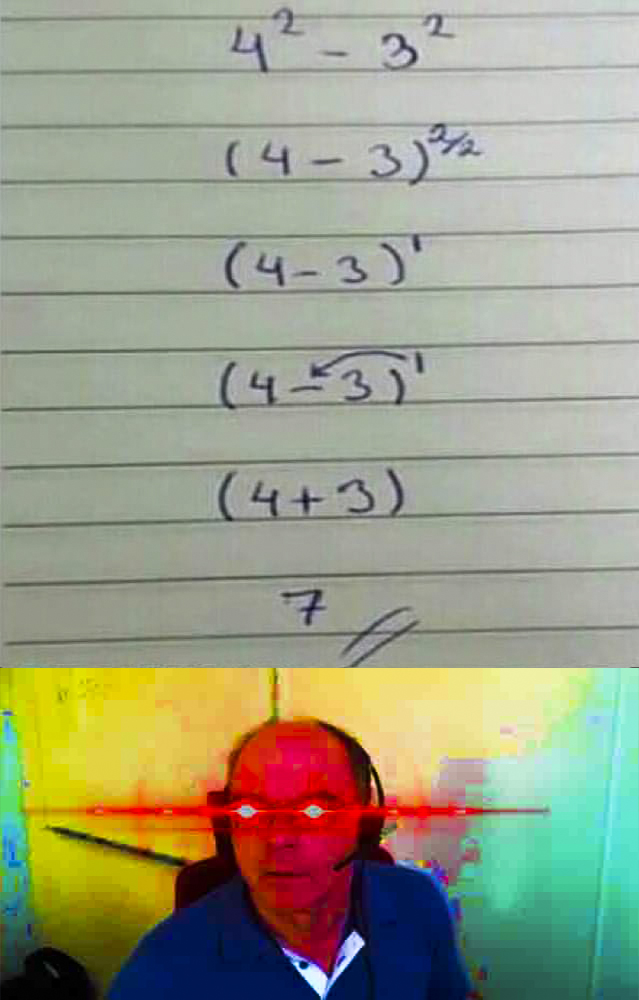 4² - 3²
(4 - 3)^2/2
(4 - 3)^1
(4 - 3)^1
(4 + 3)
7